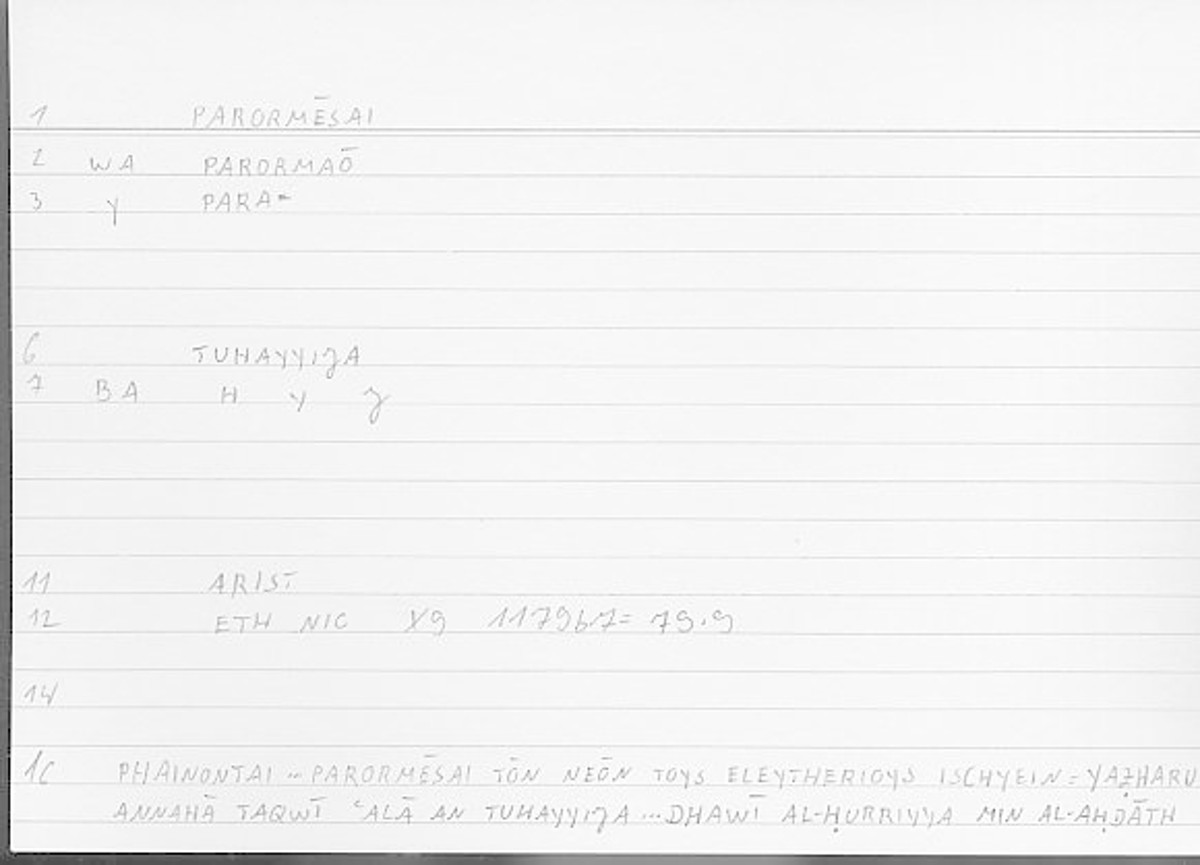 1 PARORMĒSAI
2 WA PARORMAŌ
3 Y PARA-
6 TUHAYYIJA
7 BA H Y J
11 ARIST
12 ETH NIC X9 1179b7= 79.9
14
16 PHAINONTAI ... PARORMĒSAI TŌN NEŌN TOYS ELEYTHERIOYS ISCHYEIN = YAẒHARU
ANNAHĀ TAQWĪ ʿALĀ AN TUHAYYIJA ... DHAWĪ AL-ḤURRIYYA MIN AL-AḤDĀTH